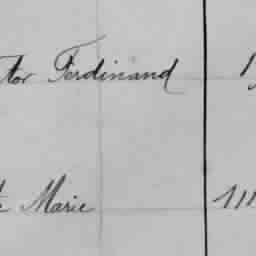 tor Ferdinand
Marie 111